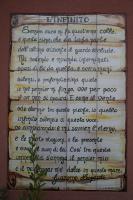 L'INFINITO
Sempre caro mi fu quest'ermo colle,
e questa siepe che da tanta parte
dell'ultimo orizzonte il guardo esclude.
Ma sedendo e mirando, interminati
spazi di là da quella, e sovrumani
silenzi, e profondissima quiete
io nel pensier mi fingo, ove per poco
il cor non si spaura. E come il vento
odo stormir tra queste piante, io quello
infinito silenzio a questa voce
vo comparando: e mi sovvien l'eterno,
e le morte stagioni, e la presente
e viva, e il suon di lei. Così tra questa
immensità s'annega il pensier mio:
e il naufragar m'è dolce in questo mare.
Giacomo Leopardi